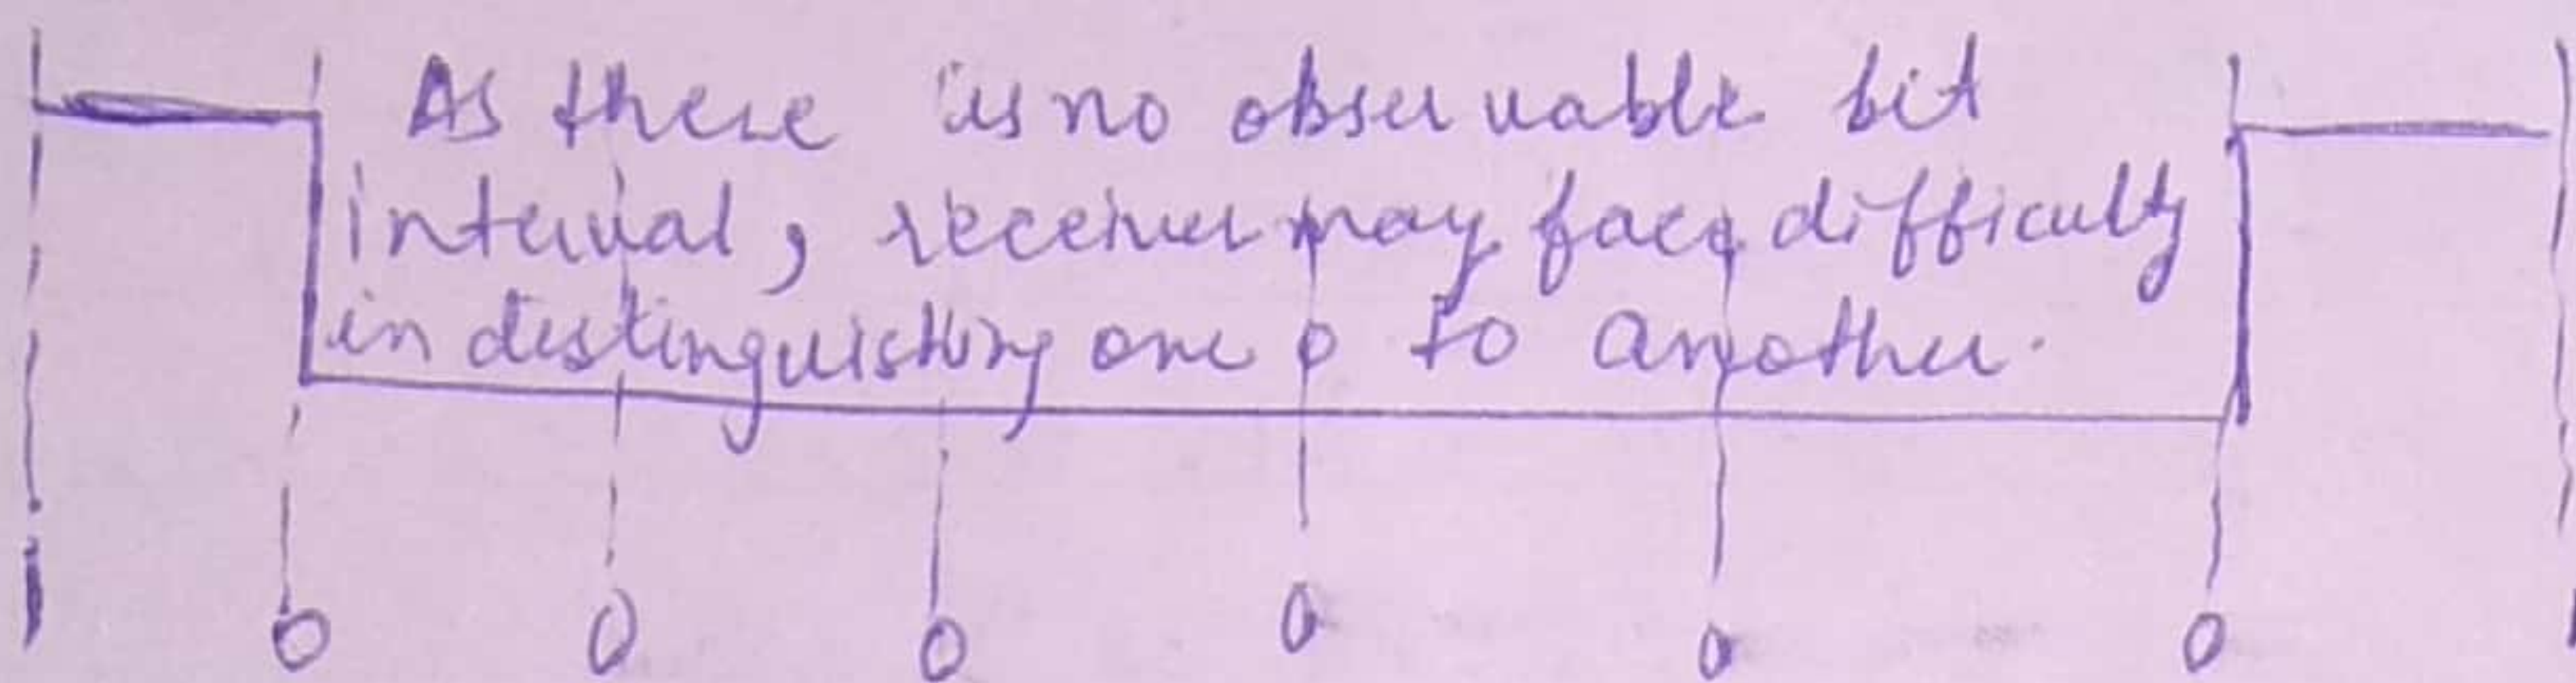 As there is no observable bit
interval, receiver may face difficulty
in distinguishing one 0 to another.
1 0 0 0 0 0 0 1